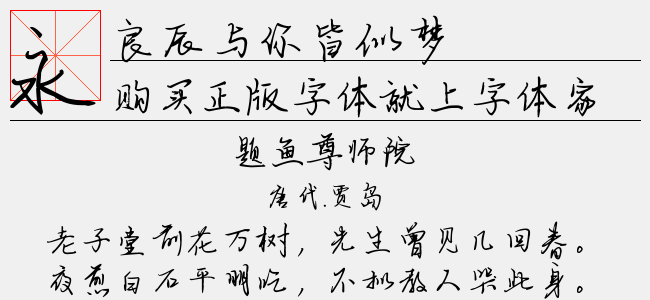 永
良辰与你皆似梦
购买正版字体就上字体家
题鱼尊师院
唐代.贾岛
老子堂前花万树，先生曾见几回春。
夜煎白石平明吃，不拟教人哭此身。